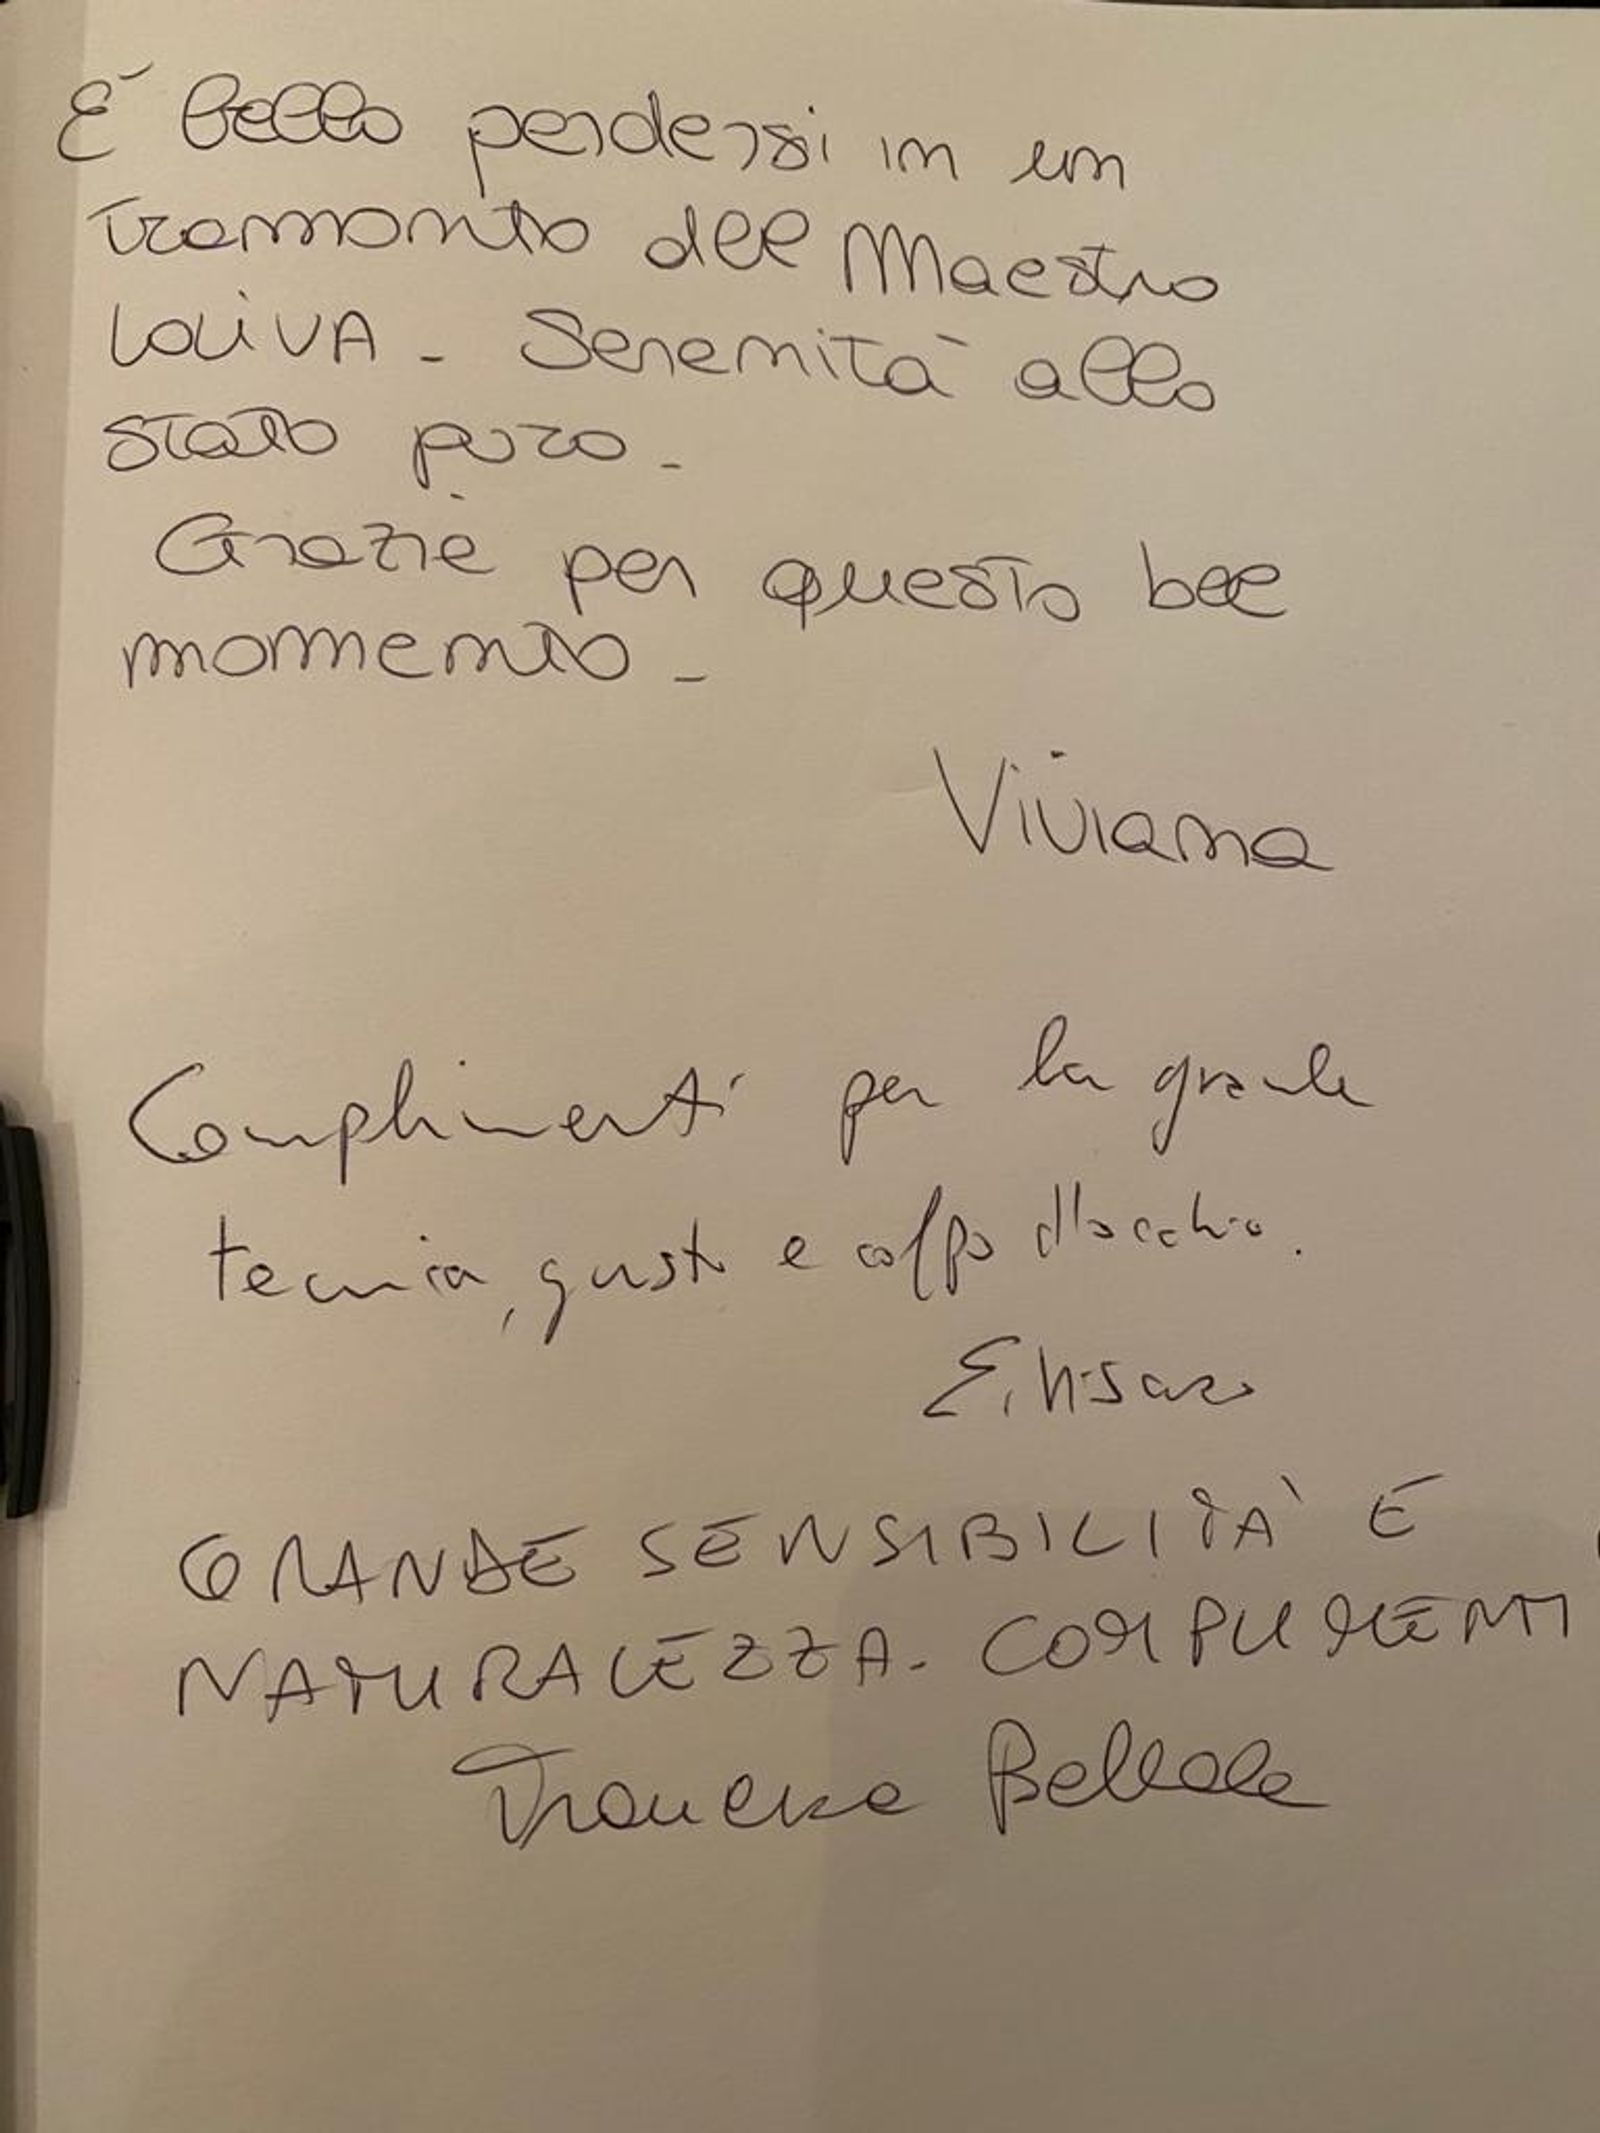 È bello perdersi in un
tramonto del Maestro
LOLIVA - Serenità allo
stato puro -
Grazie per questo bel
momento -
Viviana
Complimenti per la grande
tecnica, gusto e colpo d'occhio.
GRANDE SENSIBILITÀ E
NATURALEZZA. COMPLIMENTI